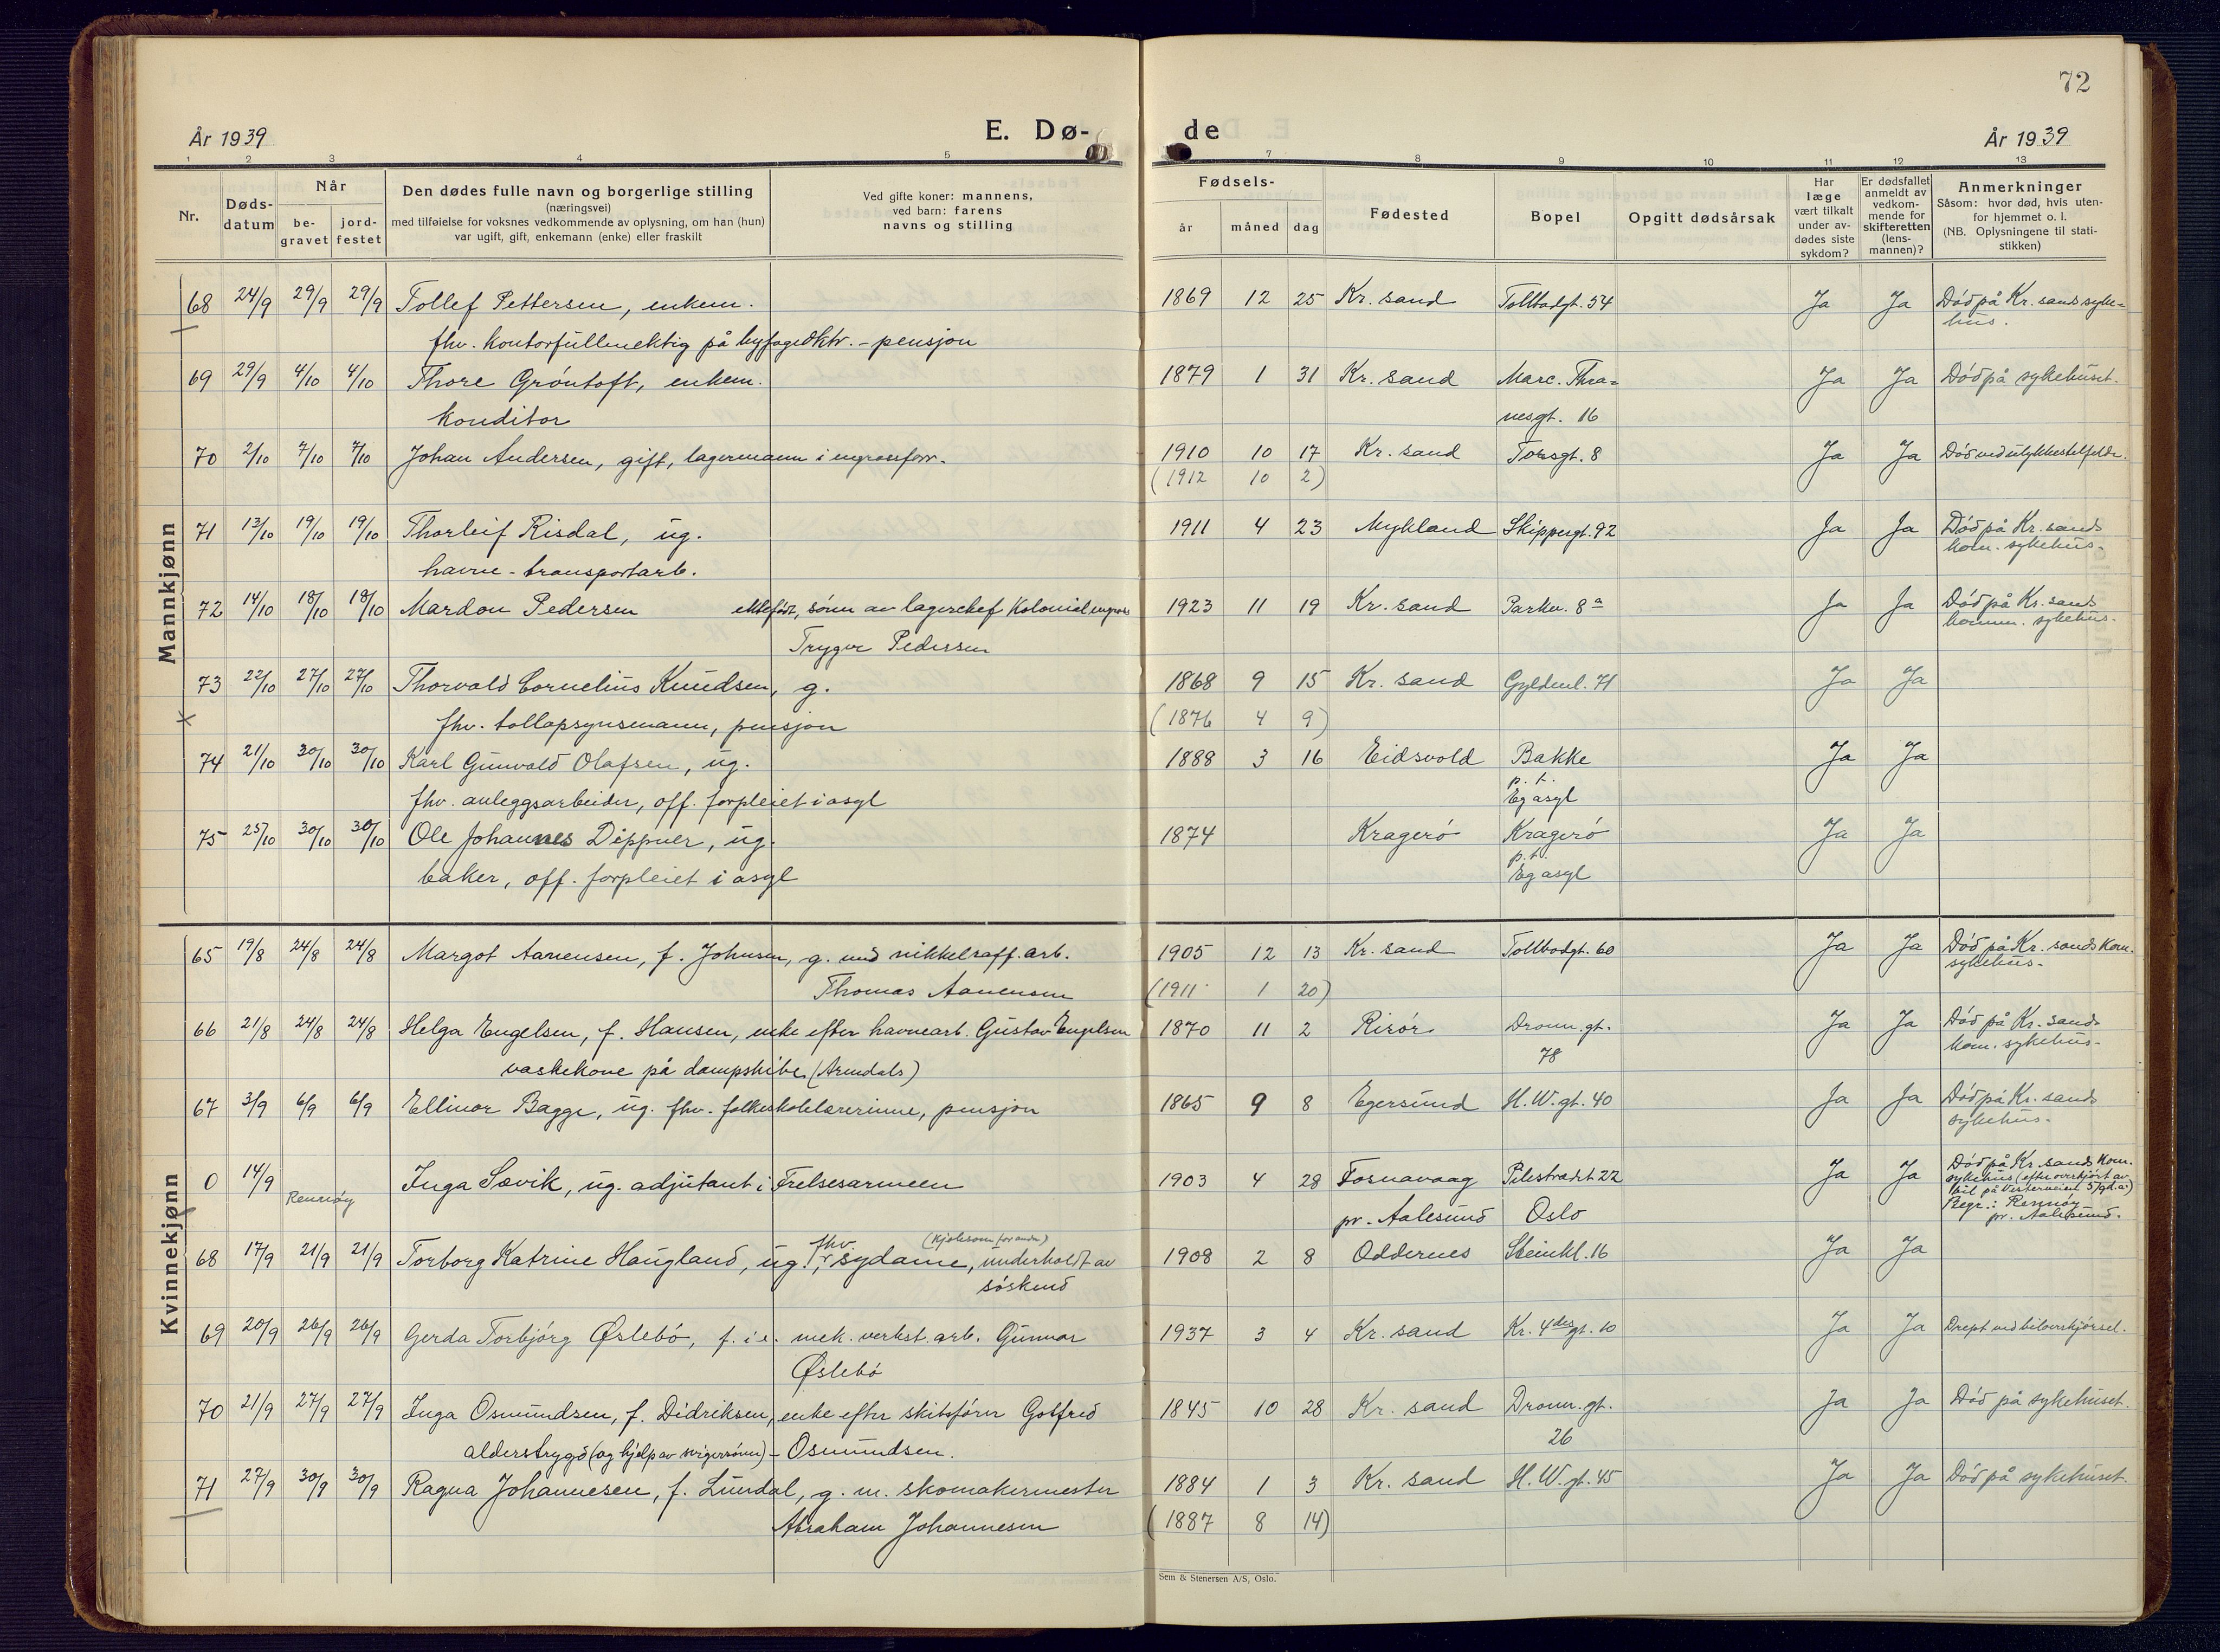 72
År 1939
E. Dø-
de
År 1939
1 2 3 4 5 7 8 9 10 11 12 13
Nr.
Døds-
datum
Når
be-
gravet
jord-
festet
Den dødes fulle navn og borgerlige stilling
(næringsvei)
med tilføielse for voksnes vedkommende av oplysning, om han (hun)
var ugift, gift, enkemann (enke) eller fraskilt
Ved gifte koner: mannens,
ved barn: farens
navns og stilling
Fødsels-
år måned dag
Fødested
Bopel
Opgitt dødsårsak
Har
læge
vært tilkalt
under av-
dødes siste
sykdom?
Er dødsfallet
anmeldt av
vedkom-
mende for
skifteretten
(lens-
mannen)?
Anmerkninger
Såsom: hvor død, hvis uten-
for hjemmet o. l.
(NB. Oplysningene til stati-
stikken)
Mannkjønn
68 24/9 29/9 29/9 Tollef Pettersen, enkem. 1869 12 25 Kr. sand Tollbodgt. 54 Ja Ja Död på Kr. sands syke-
hus.
fhv. kontorfullmektig på byfogedktr. - pensjon
69 29/9 4/10 4/10 Thore Gröntoft, enkem. 1879 1 31 Kr. sand Marc. Thra- Ja Ja Död på sykehuset.
konditor nesgt. 16
70 2/10 7/10 7/10 Johan Andersen, gift, lagermann i engrosforr. 1910 10 17 Kr. sand Torsgt. 8 Ja Ja Död ved ulykkestilfelde.
(1912 10 2)
71 13/10 19/10 19/10 Thorleif Risdal, ug. 1911 4 23 Mykland Skippergt. 92 Ja Ja Död på Kr. sands
kom. sykehus.
havne - transportarb.
72 14/10 18/10 18/10 Mardon Pedersen ektefödt, sönn av lagerchef Kolonial engros 1923 11 19 Kr. sand Parkv. 8a Ja Ja Död på Kr. sands
komm. sykehus.
Trygve Pedersen
73 22/10 27/10 27/10 Thorvald Cornelius Knudsen, g. 1868 9 15 Kr. sand Gyldenl. 71 Ja Ja
fhv. tollopsynsmann, pensjon (1876 4 9)
74 21/10 30/10 30/10 Karl Gunvald Olafsen, ug. 1888 3 16 Eidsvold Bakke Ja Ja
p. t.
fhv. anleggsarbeider, off. forpleiet i asyl Eg asyl
75 25/10 30/10 30/10 Ole Johannes Dippner, ug. 1874 Kragerö Kragerö Ja Ja
p. t.
baker, off. forpleiet i asyl Eg asyl
Kvinnekjønn
65 19/8 24/8 24/8 Margot Aanensen, f. Johnsen, g. med nikkelraff. arb. 1905 12 13 Kr. sand Tollbodgt. 60 Ja Ja Död på Kr. sands kom.
sykehus.
Thomas Aanensen (1911 1 20)
66 21/8 24/8 24/8 Helga Engelsen, f. Hansen, enke efter havnearb. Gustav Engelsen 1870 11 2 Risör Dronn. gt. Ja Ja Död på Kr. sands
kom. sykehus.
vaskekone på dampskibe (Arendals) 78
67 3/9 6/9 6/9 Ellinor Bagge, ug. fhv. folkeskolelærerinne, pensjon 1865 9 8 Egersund H. W. gt. 40 Ja Ja Död på Kr. sands
sykehus.
0 14/9 Remöy Inga Sævik, ug. adjutant i Frelsesarmeen 1903 4 28 Fosnavaag Pilestrædet 22 Ja Ja Död på Kr. sands kom.
sykehus (efter overkjört av
bil på Vesterveien
pr. Aalesund Oslo Begr. i Remöy
pr. Aalesund.
68 17/9 21/9 21/9 Torborg Katrine Haugland, ug., fhv. sydame, (kjolesöm for andre) underholdt av 1908 2 8 Oddernes Steinkl. 16 Ja Ja
söskend
69 20/9 26/9 26/9 Gerda Torbjörg Øslebö, f. i e. mek. verkst. arb. Gunnar 1937 3 4 Kr. sand Kr. 4des gt. 10 Ja Ja Drept ved biloverkjörsel.
Øslebö
70 21/9 27/9 27/9 Inga Osmundsen, f. Didriksen, enke efter skibsförer Gotfred 1845 10 28 Kr. sand Dronn. gt. Ja Ja Död på sykehuset.
alderstrygd (og hjelp av svigersönn) - Osmundsen. 26
71 27/9 30/9 30/9 Ragna Johannesen, f. Lundal, g. m. skomakermester 1884 1 3 Kr. sand H. W. gt. 45 Ja Ja Död på sykehuset.
Abraham Johannesen (1887 8 14)
Sem & Stenersen A/S, Oslo.